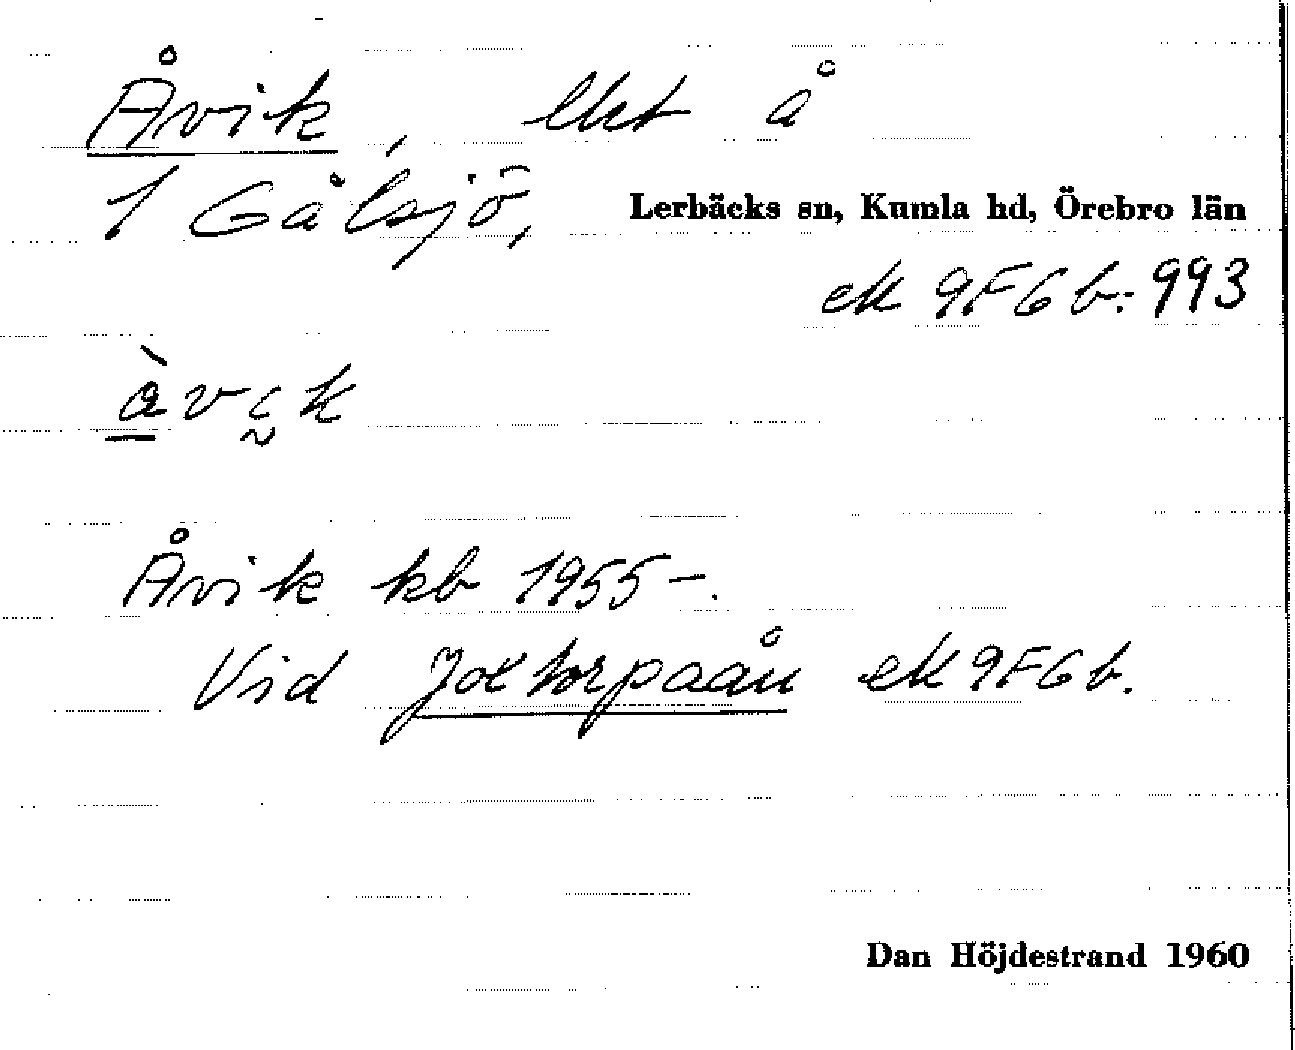 Åvik, lht å
1 Gålsjö,
Lerbäcks sn, Kumla hd, Örebro län
ek 9F6b: 993
àvik
Åvik kb 1955-.
Vid Joltorpaån ek 9F6b.
Dan Höjdestrand 1960